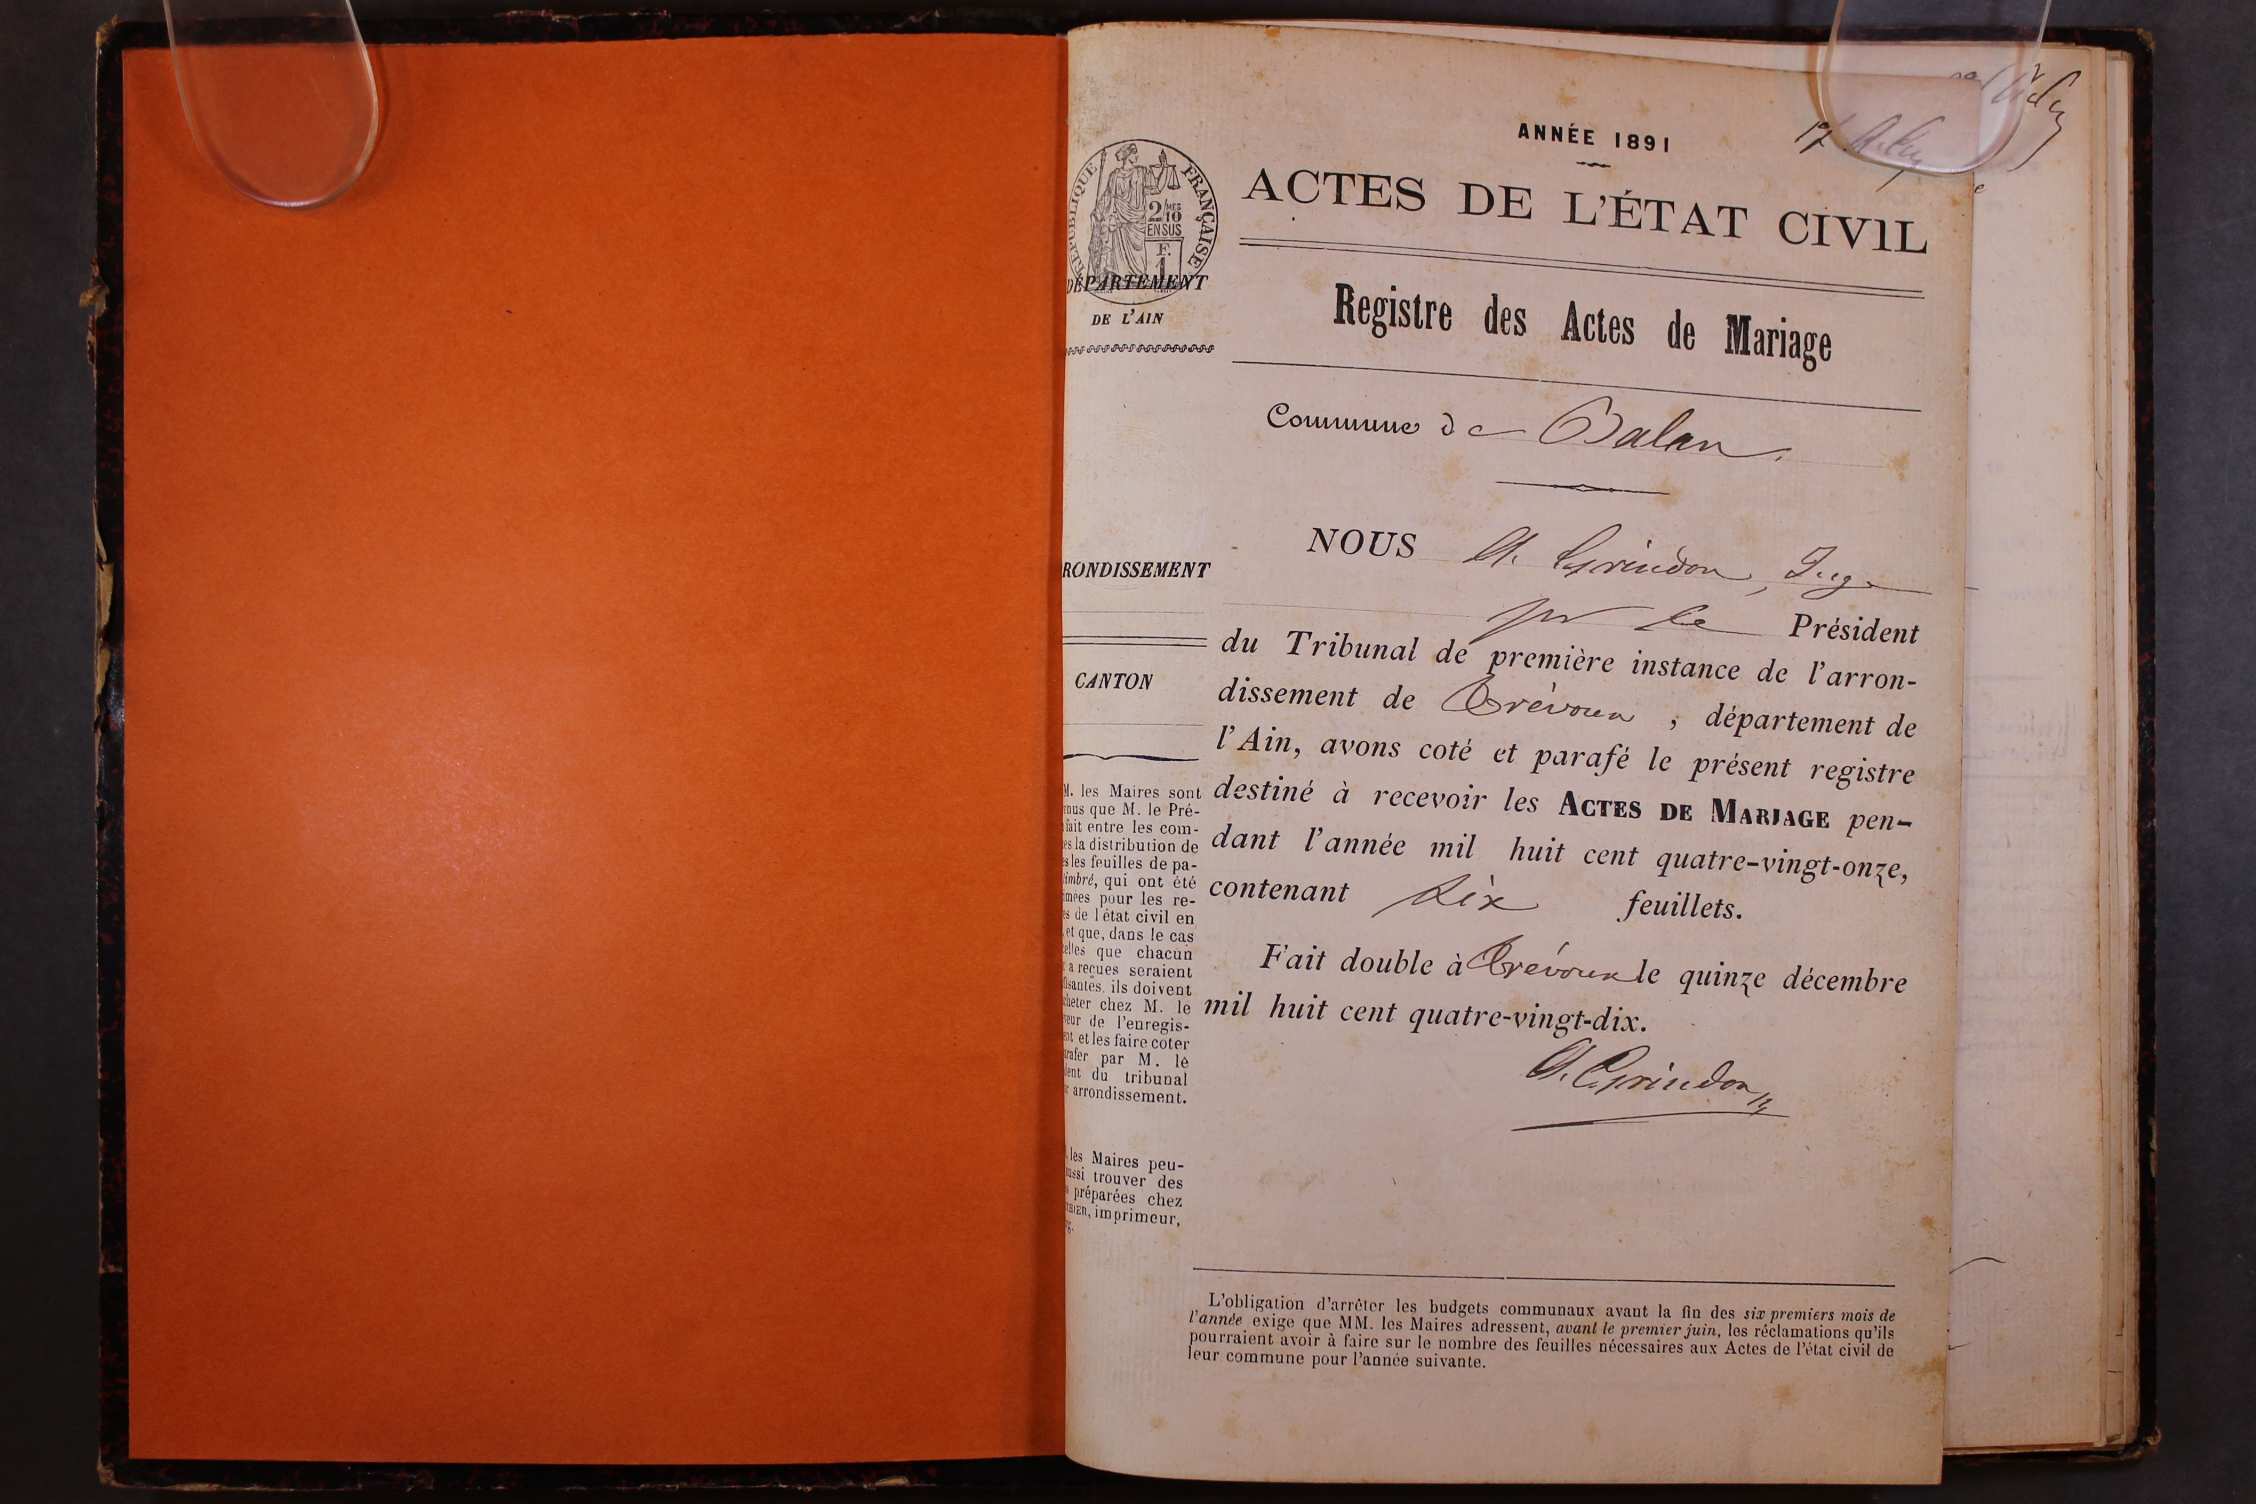 ANNÉE 1891
ACTES DE L'ÉTAT CIVIL
RÉPUBLIQUE FRANÇAISE
2/10 MES
EN SUS
F.
1
DÉPARTEMENT
DE L'AIN
Registre des Actes de Mariage
Commune de Balan.
NOUS A. Grindon, Juge
pr le Président
du Tribunal de première instance de l'arron-
dissement de Trévoux, département de
l'Ain, avons coté et parafé le présent registre
destiné à recevoir les ACTES DE MARIAGE pen-
dant l'année mil huit cent quatre-vingt-onze,
contenant dix feuillets.
Fait double à Trévoux le quinze décembre
mil huit cent quatre-vingt-dix.
A. Grindon
RONDISSEMENT
CANTON
M. les Maires sont
nus que M. le Pré-
fait entre les com-
es la distribution de
s les feuilles de pa-
imbré, qui ont été
mées pour les re-
s de l'état civil en
, et que, dans le cas
elles que chacun
a reçues seraient
fisantes, ils doivent
cheter chez M. le
eur de l'enregis-
nt et les faire coter
rafer par M. le
dent du tribunal
r arrondissement.
. les Maires peu-
ussi trouver des
préparées chez
imprimeur,
L'obligation d'arrêter les budgets communaux avant la fin des six premiers mois de
l'année exige que MM. les Maires adressent, avant le premier juin, les réclamations qu'ils
pourraient avoir à faire sur le nombre des feuilles nécessaires aux Actes de l'état civil de
leur commune pour l'année suivante.